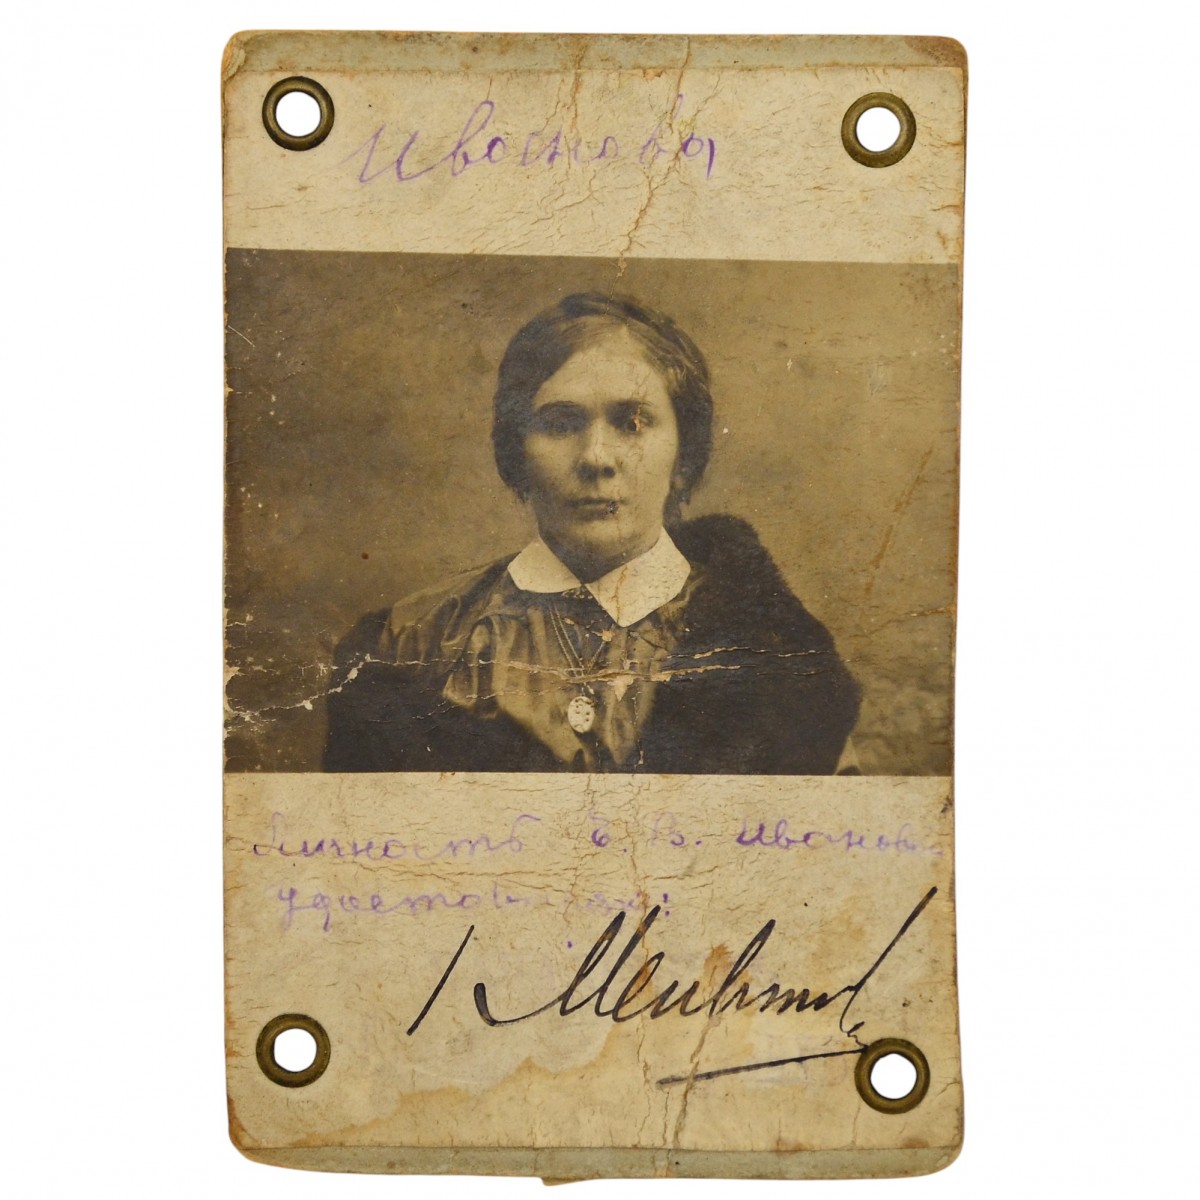 Иванова
Личность Е. В. Ивановой
удостоверяю: